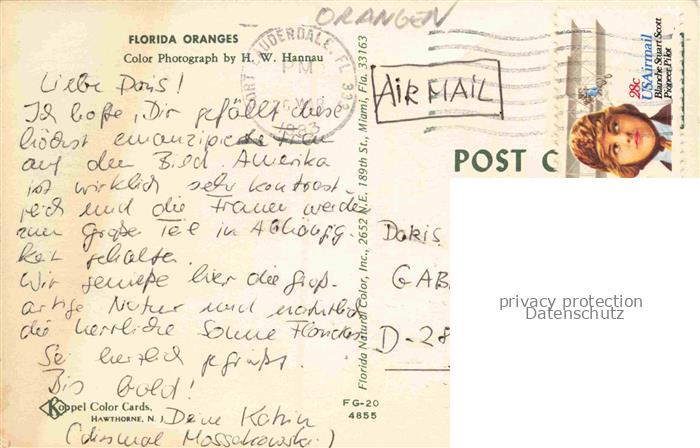 ORANGEN
FLORIDA ORANGES
Color Photograph by H. W. Hannau
FORT LAUDERDALE, FL 333
PM
1983
28c
USAirmail
Blanche Stuart Scott
Pioneer Pilot
AIR MAIL
POST C
Liebe Doris!
Ich hoffe, Dir gefällt diese
höchst emanzipierte Frau
auf dem Bild. Amerika
ist wirklich sehr kontrast-
reich und die Frauen werden
zum großen Teil in Abhängig-
keit gehalten.
Wir genieße hier die groß-
artige Natur und natürlich
die herrliche Sonne Floridas
Sei herzlich gegrüßt.
Bis bald!
Deine Katrin
(diesmal Mossakowski)
Florida Natural Color, Inc., 2652 N.E. 189th St., Miami, Fla. 33163
Doris
GAB
D-28
privacy protection
Datenschutz
Koppel Color Cards,
HAWTHORNE, N. J.
FG-20
4855